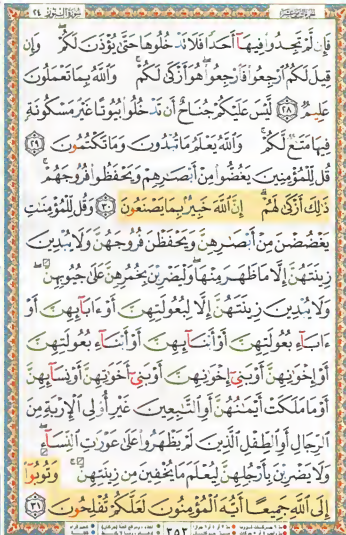 سورة النور ٢٤
فَإِن لَّمْ تَجِدُوا۟ فِيهَآ أَحَدًا فَلَا تَدْخُلُوهَا حَتَّىٰ يُؤْذَنَ لَكُمْ ۖ وَإِن
قِيلَ لَكُمُ ٱرْجِعُوا۟ فَٱرْجِعُوا۟ ۖ هُوَ أَزْكَىٰ لَكُمْ ۚ وَٱللَّهُ بِمَا تَعْمَلُونَ
عَلِيمٌ ٢٨ لَّيْسَ عَلَيْكُمْ جُنَاحٌ أَن تَدْخُلُوا۟ بُيُوتًا غَيْرَ مَسْكُونَةٍ
فِيهَا مَتَٰعٌ لَّكُمْ ۚ وَٱللَّهُ يَعْلَمُ مَا تُبْدُونَ وَمَا تَكْتُمُونَ ٢٩
قُل لِّلْمُؤْمِنِينَ يَغُضُّوا۟ مِنْ أَبْصَٰرِهِمْ وَيَحْفَظُوا۟ فُرُوجَهُمْ ۚ
ذَٰلِكَ أَزْكَىٰ لَهُمْ ۗ إِنَّ ٱللَّهَ خَبِيرٌۢ بِمَا يَصْنَعُونَ ٣٠ وَقُل لِّلْمُؤْمِنَٰتِ
يَغْضُضْنَ مِنْ أَبْصَٰرِهِنَّ وَيَحْفَظْنَ فُرُوجَهُنَّ وَلَا يُبْدِينَ
زِينَتَهُنَّ إِلَّا مَا ظَهَرَ مِنْهَا ۖ وَلْيَضْرِبْنَ بِخُمُرِهِنَّ عَلَىٰ جُيُوبِهِنَّ ۖ
وَلَا يُبْدِينَ زِينَتَهُنَّ إِلَّا لِبُعُولَتِهِنَّ أَوْ ءَابَآئِهِنَّ أَوْ
ءَابَآءِ بُعُولَتِهِنَّ أَوْ أَبْنَآئِهِنَّ أَوْ أَبْنَآءِ بُعُولَتِهِنَّ
أَوْ إِخْوَٰنِهِنَّ أَوْ بَنِىٓ إِخْوَٰنِهِنَّ أَوْ بَنِىٓ أَخَوَٰتِهِنَّ أَوْ نِسَآئِهِنَّ
أَوْ مَا مَلَكَتْ أَيْمَٰنُهُنَّ أَوِ ٱلتَّٰبِعِينَ غَيْرِ أُو۟لِى ٱلْإِرْبَةِ مِنَ
ٱلرِّجَالِ أَوِ ٱلطِّفْلِ ٱلَّذِينَ لَمْ يَظْهَرُوا۟ عَلَىٰ عَوْرَٰتِ ٱلنِّسَآءِ ۖ
وَلَا يَضْرِبْنَ بِأَرْجُلِهِنَّ لِيُعْلَمَ مَا يُخْفِينَ مِن زِينَتِهِنَّ ۚ وَتُوبُوٓا۟
إِلَى ٱللَّهِ جَمِيعًا أَيُّهَ ٱلْمُؤْمِنُونَ لَعَلَّكُمْ تُفْلِحُونَ ٣١
٣٥٣